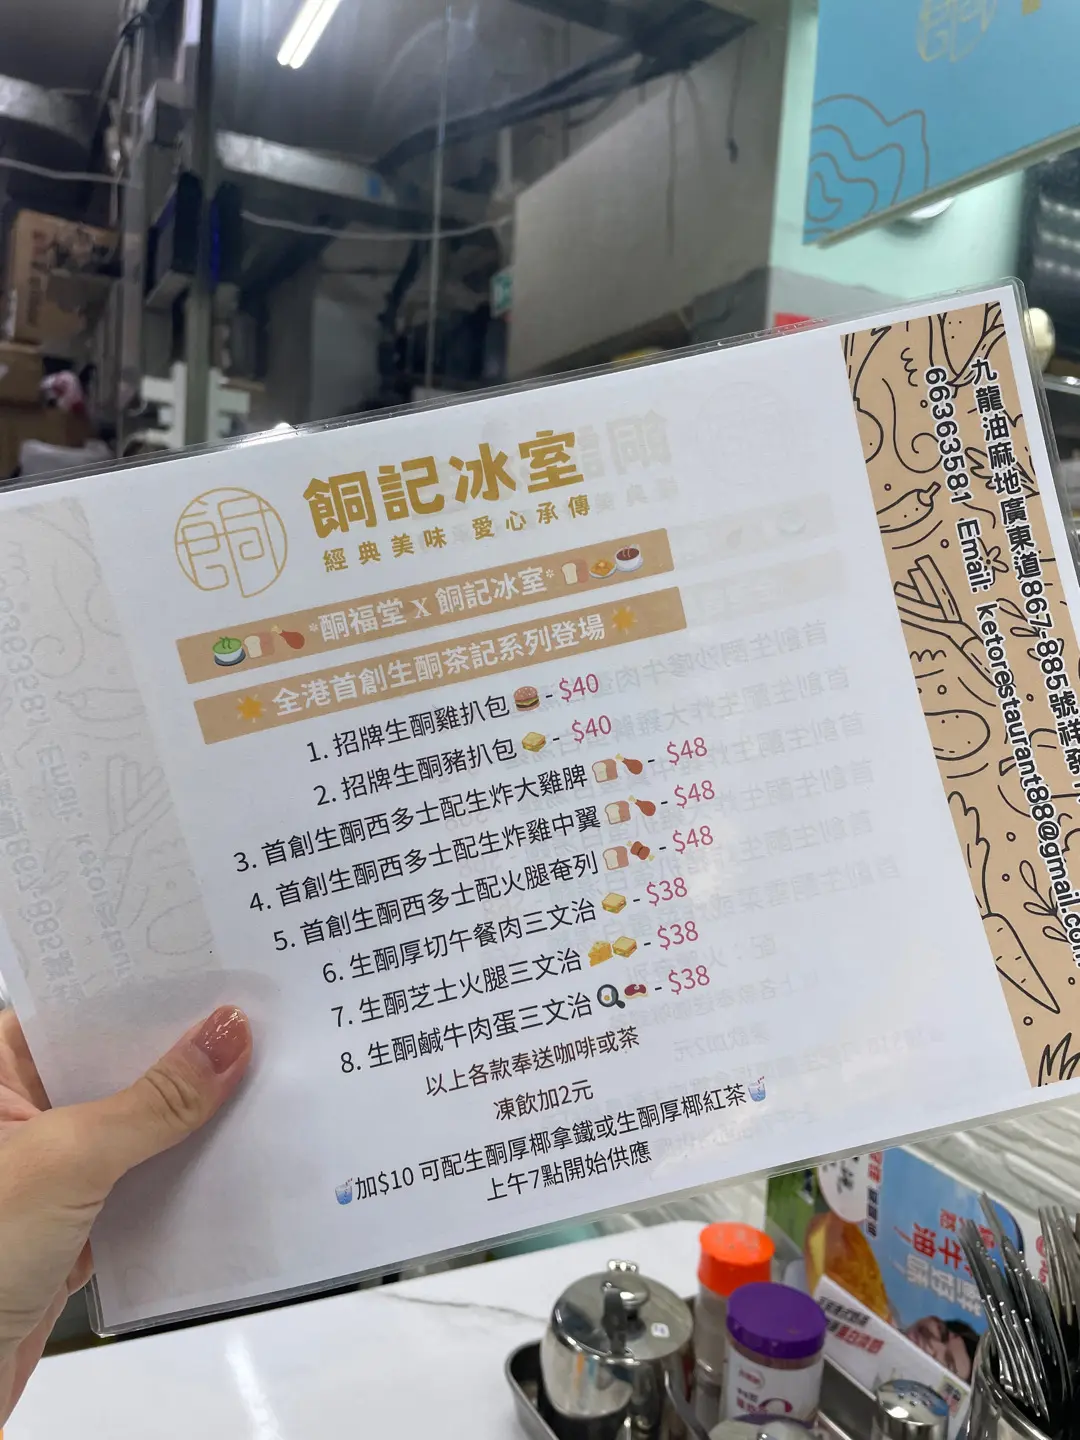 餇
餇記冰室
經典美味 愛心承傳
*酮福堂 X 餇記冰室*
全港首創生酮茶記系列登場
1. 招牌生酮雞扒包 - $40
2. 招牌生酮豬扒包 - $40
3. 首創生酮西多士配生炸大雞脾 - $48
4. 首創生酮西多士配生炸雞中翼 - $48
5. 首創生酮西多士配火腿奄列 - $48
6. 生酮厚切午餐肉三文治 - $38
7. 生酮芝士火腿三文治 - $38
8. 生酮鹹牛肉蛋三文治 - $38
以上各款奉送咖啡或茶
凍飲加2元
加$10 可配生酮厚椰拿鐵或生酮厚椰紅茶
上午7點開始供應
九龍油麻地廣東道867-885號祥發
66363581 Email: ketorestaurant88@gmail.com